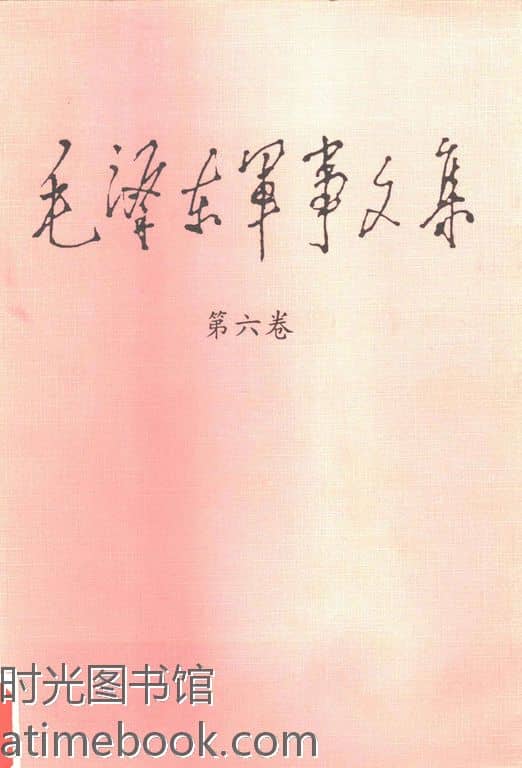 毛泽东军事文集
第六卷
时光图书馆
atimebook.com